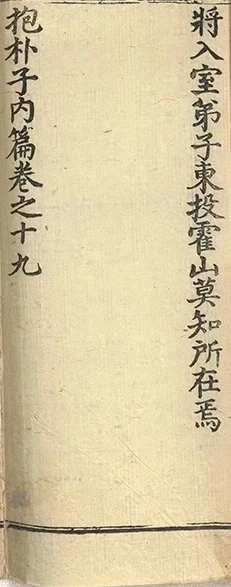 將入室弟子東投霍山莫知所在焉
抱朴子内篇卷之十九